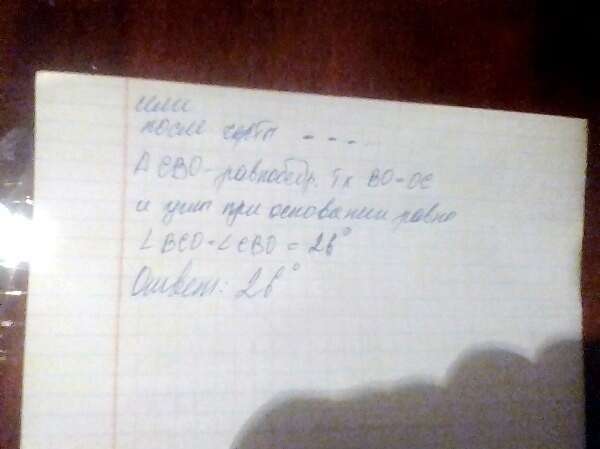 или
после черты - - - -
Δ CBO - равнобедр. Тк BO=OC
и углы при основании равно
∠BCO=∠CBO = 26°
Ответ: 26°